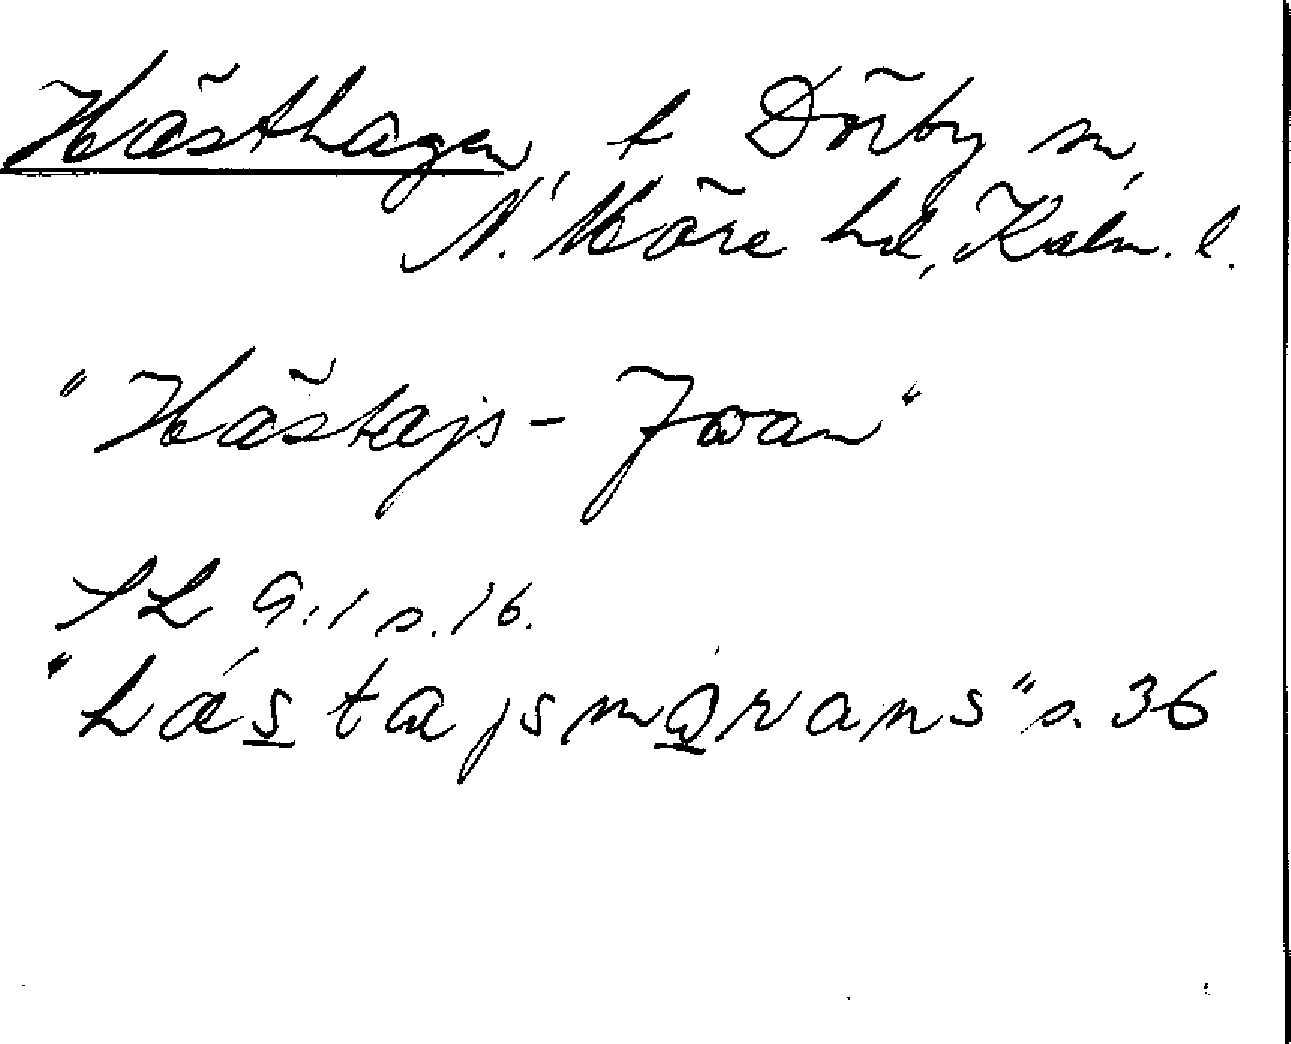 Hästhagen, t Dörby sn,
N. Möre hd, Kalm. l.
"Hästajs - Johan"
SL 9:1 s. 16.
"hástajsmǫrans" s. 36